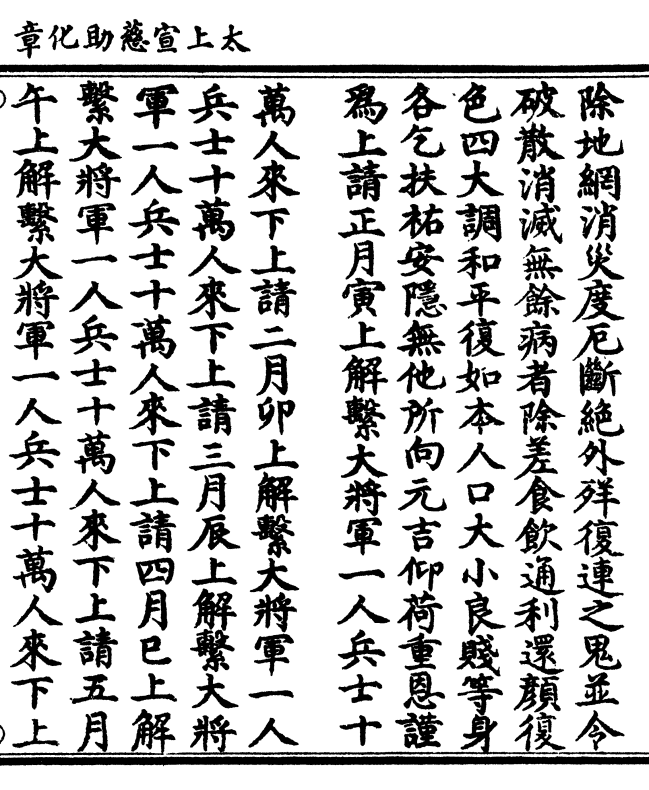 太上宣慈助化章
除地網消災度厄斷絕外殃復連之鬼並令
破散消滅無餘病者除差食飲通利還顏復
色四大調和平復如本人口大小良賤等身
各乞扶祐安隱無他所向元吉仰荷重恩謹
爲上請正月寅上解繫大將軍一人兵士十
萬人來下上請二月卯上解繫大將軍一人
兵士十萬人來下上請三月辰上解繫大將
軍一人兵士十萬人來下上請四月巳上解
繫大將軍一人兵士十萬人來下上請五月
午上解繫大將軍一人兵士十萬人來下上